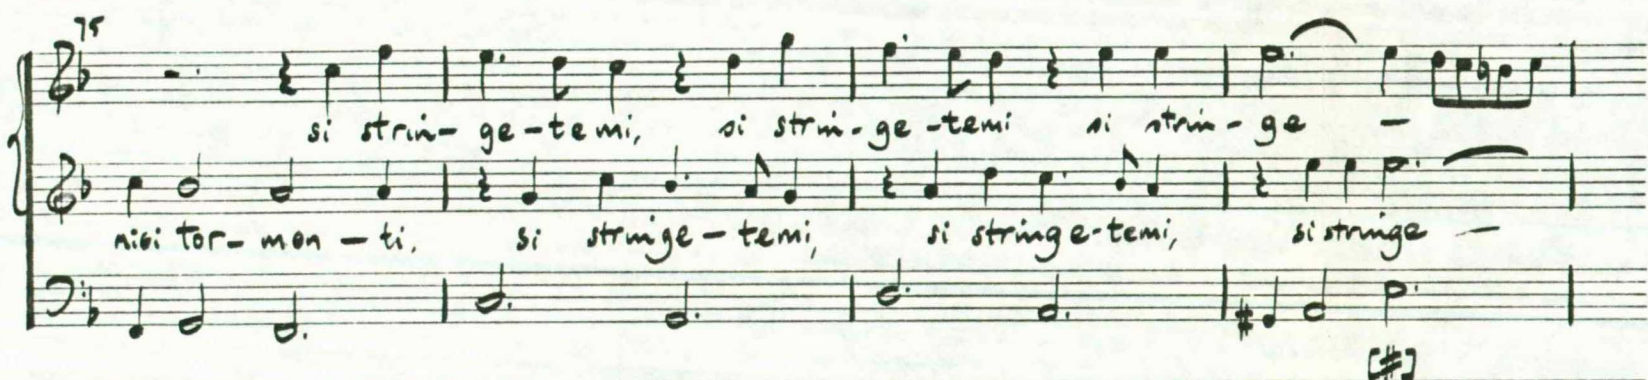 75
si strin- ge-te mi, si strin-ge-temi si strin-ge —
miei tor- men-ti. si stringe-temi, si stringe-temi, si stringe —
[#]